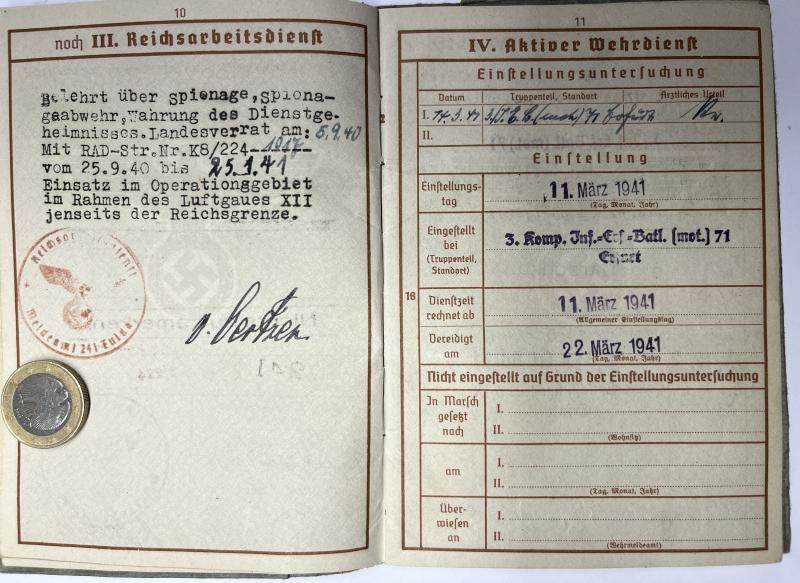 10
noch III. Reichsarbeitsdienst
Belehrt über Spionage, Spiona-
gaabwehr, Wahrung des Dienstge-
heimnisses. Landesverrat am: 5.9.40
Mit RAD-Str.Nr.K8/224-1017-
vom 25.9.40 bis 25.1.41
Einsatz im Operationggebiet
im Rahmen des Luftgaues XII
jenseits der Reichsgrenze.
Reichsarbeitsdienst
Meldeamt 241
11
IV. Aktiver Wehrdienst
Einstellungsuntersuchung
Datum Truppenteil, Standort Ärztliches Urteil
I. 14.3.41 (mot) 71 Kv.
II.
Einstellung
Einstellungs-
tag
11. März 1941
(Tag, Monat, Jahr)
Eingestellt
bei
(Truppenteil,
Standort)
3. Komp. Inf.=Ers=Batl. (mot.) 71
Erfurt
16
Dienstzeit
rechnet ab
11. März 1941
(Allgemeiner Einstellungstag)
Vereidigt
am
22. März 1941
(Tag, Monat, Jahr)
Nicht eingestellt auf Grund der Einstellungsuntersuchung
In Marsch
gesetzt
nach
I.
II.
(Wohnsitz)
am
I.
II.
(Tag, Monat, Jahr)
Über-
wiesen
an
I.
II.
(Wehrmeldeamt)